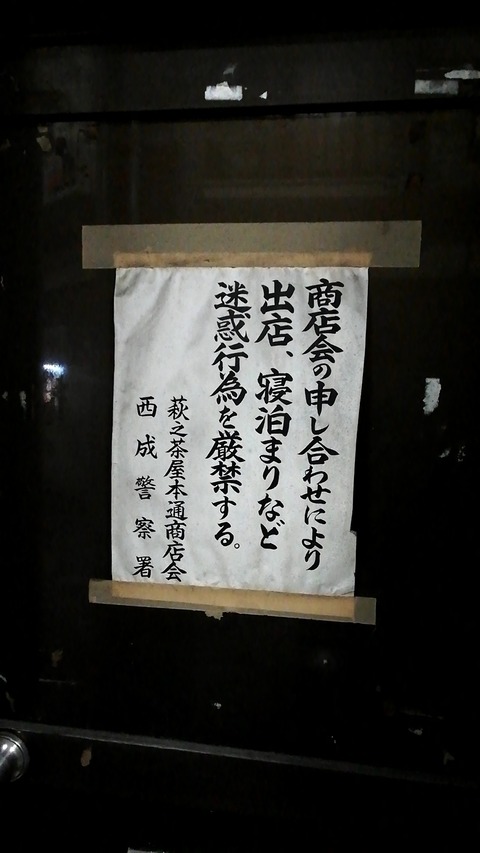 商店会の申し合わせにより
出店、寝泊まりなど
迷惑行為を厳禁する。
萩之茶屋本通商店会
西成警察署